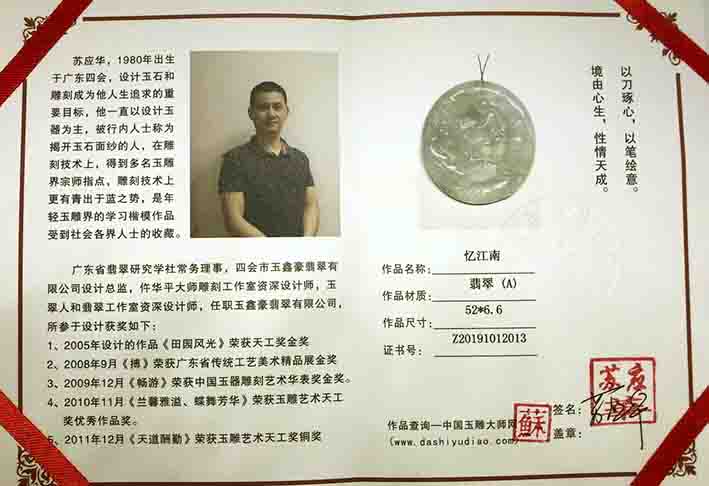 苏应华，1980年出生
于广东四会，设计玉石和
雕刻成为他人生追求的重
要目标，他一直以设计玉
器为主，被行内人士称为
揭开玉石面纱的人，在雕
刻技术上，得到多名玉雕
界宗师指点，雕刻技术上
更有青出于蓝之势，是年
轻玉雕界的学习楷模作品
受到社会各界人士的收藏。
广东省翡翠研究学社常务理事，四会市玉鑫豪翡翠有
限公司设计总监，仵华平大师雕刻工作室资深设计师，玉
翠人和翡翠工作室资深设计师，任职玉鑫豪翡翠有限公司，
所参于设计获奖如下：
1、2005年设计的作品《田园风光》荣获天工奖金奖
2、2008年9月《搏》荣获广东省传统工艺美术精品展金奖
3、2009年12月《畅游》荣获中国玉器雕刻艺术华表奖金奖。
4、2010年11月《兰馨雅溢、蝶舞芳华》荣获玉雕艺术天工
奖优秀作品奖。
5、2011年12月《天道酬勤》荣获玉雕艺术天工奖铜奖
以刀琢心，以笔绘意。
境由心生，性情天成。
作品名称：忆江南
作品材质：翡翠（A）
作品尺寸：52*6.6
证书号：Z20191012013
作品查询—中国玉雕大师网
(www.dashiyudiao.com)
蘇
签名：
盖章：
苏应